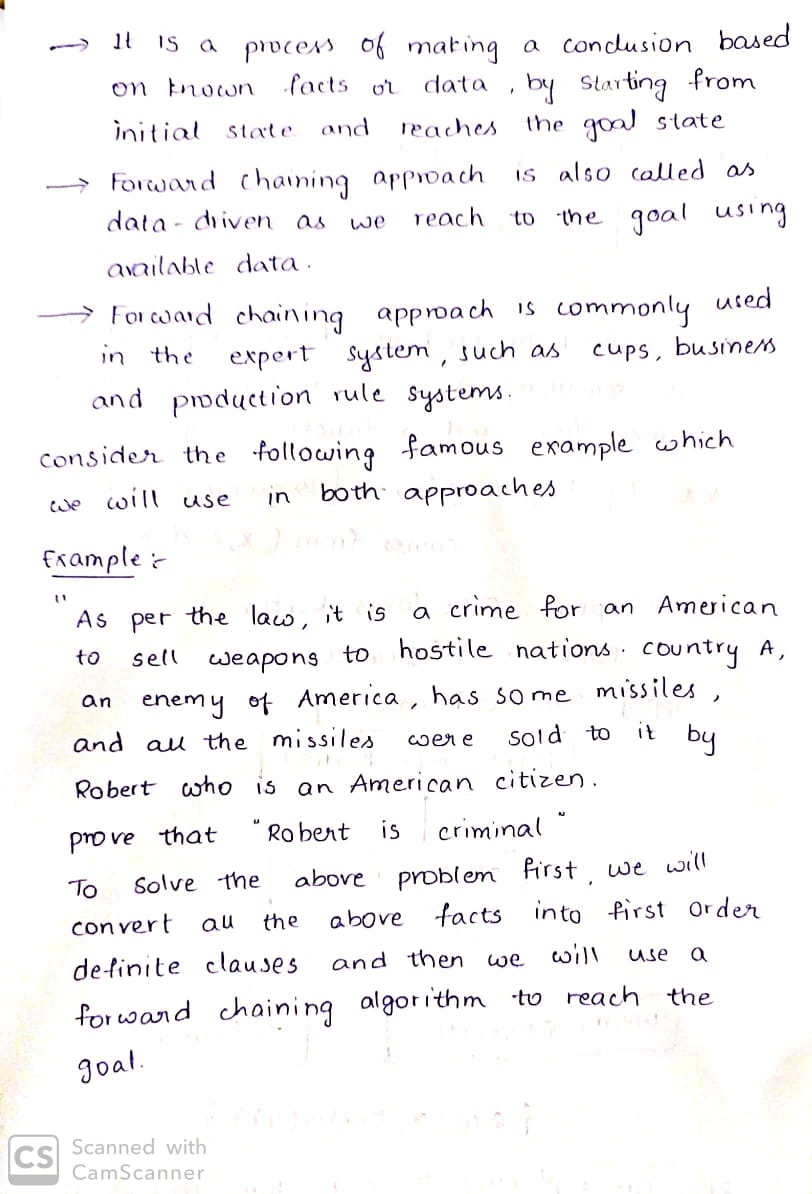 → It is a process of making a conclusion based
on known facts or data, by starting from
initial state and reaches the goal state
→ Forward chaining approach is also called as
data-driven as we reach to the goal using
available data.
→ Forward chaining approach is commonly used
in the expert system, such as cups, business
and production rule systems.
consider the following famous example which
we will use in both approaches
Example :-
"As per the law, it is a crime for an American
to sell weapons to hostile nations. country A,
an enemy of America, has some missiles,
and all the missiles were sold to it by
Robert who is an American citizen.
prove that "Robert is criminal"
To solve the above problem first, we will
convert all the above facts into first order
definite clauses and then we will use a
forward chaining algorithm to reach the
goal.
CS Scanned with
CamScanner